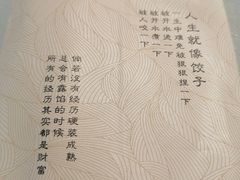 人生就像饺子
一生中难免被狠狠捏一下
被开水烫一下
被开水煮一下
被人咬一下
倘若没有经历硬装成熟
总会有露馅的时候
所有的经历其实都是财富